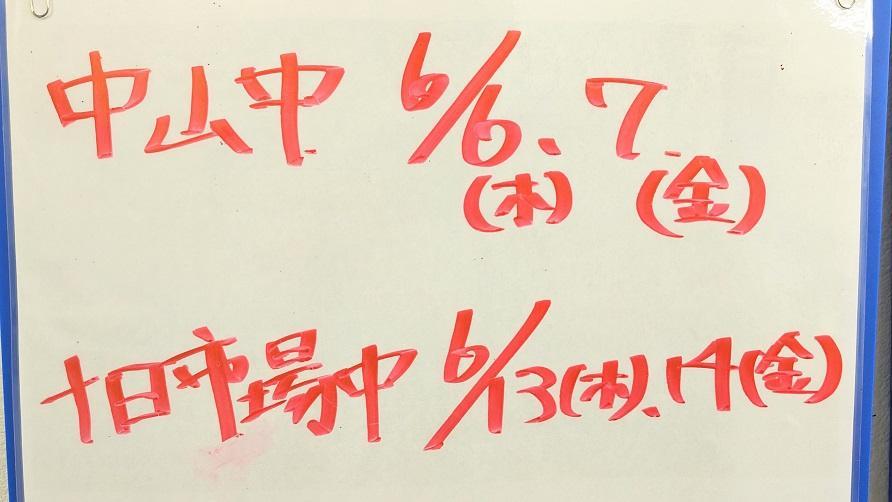 中山中 6/6、7
(木) (金)
十日市場中 6/13(木)、14(金)